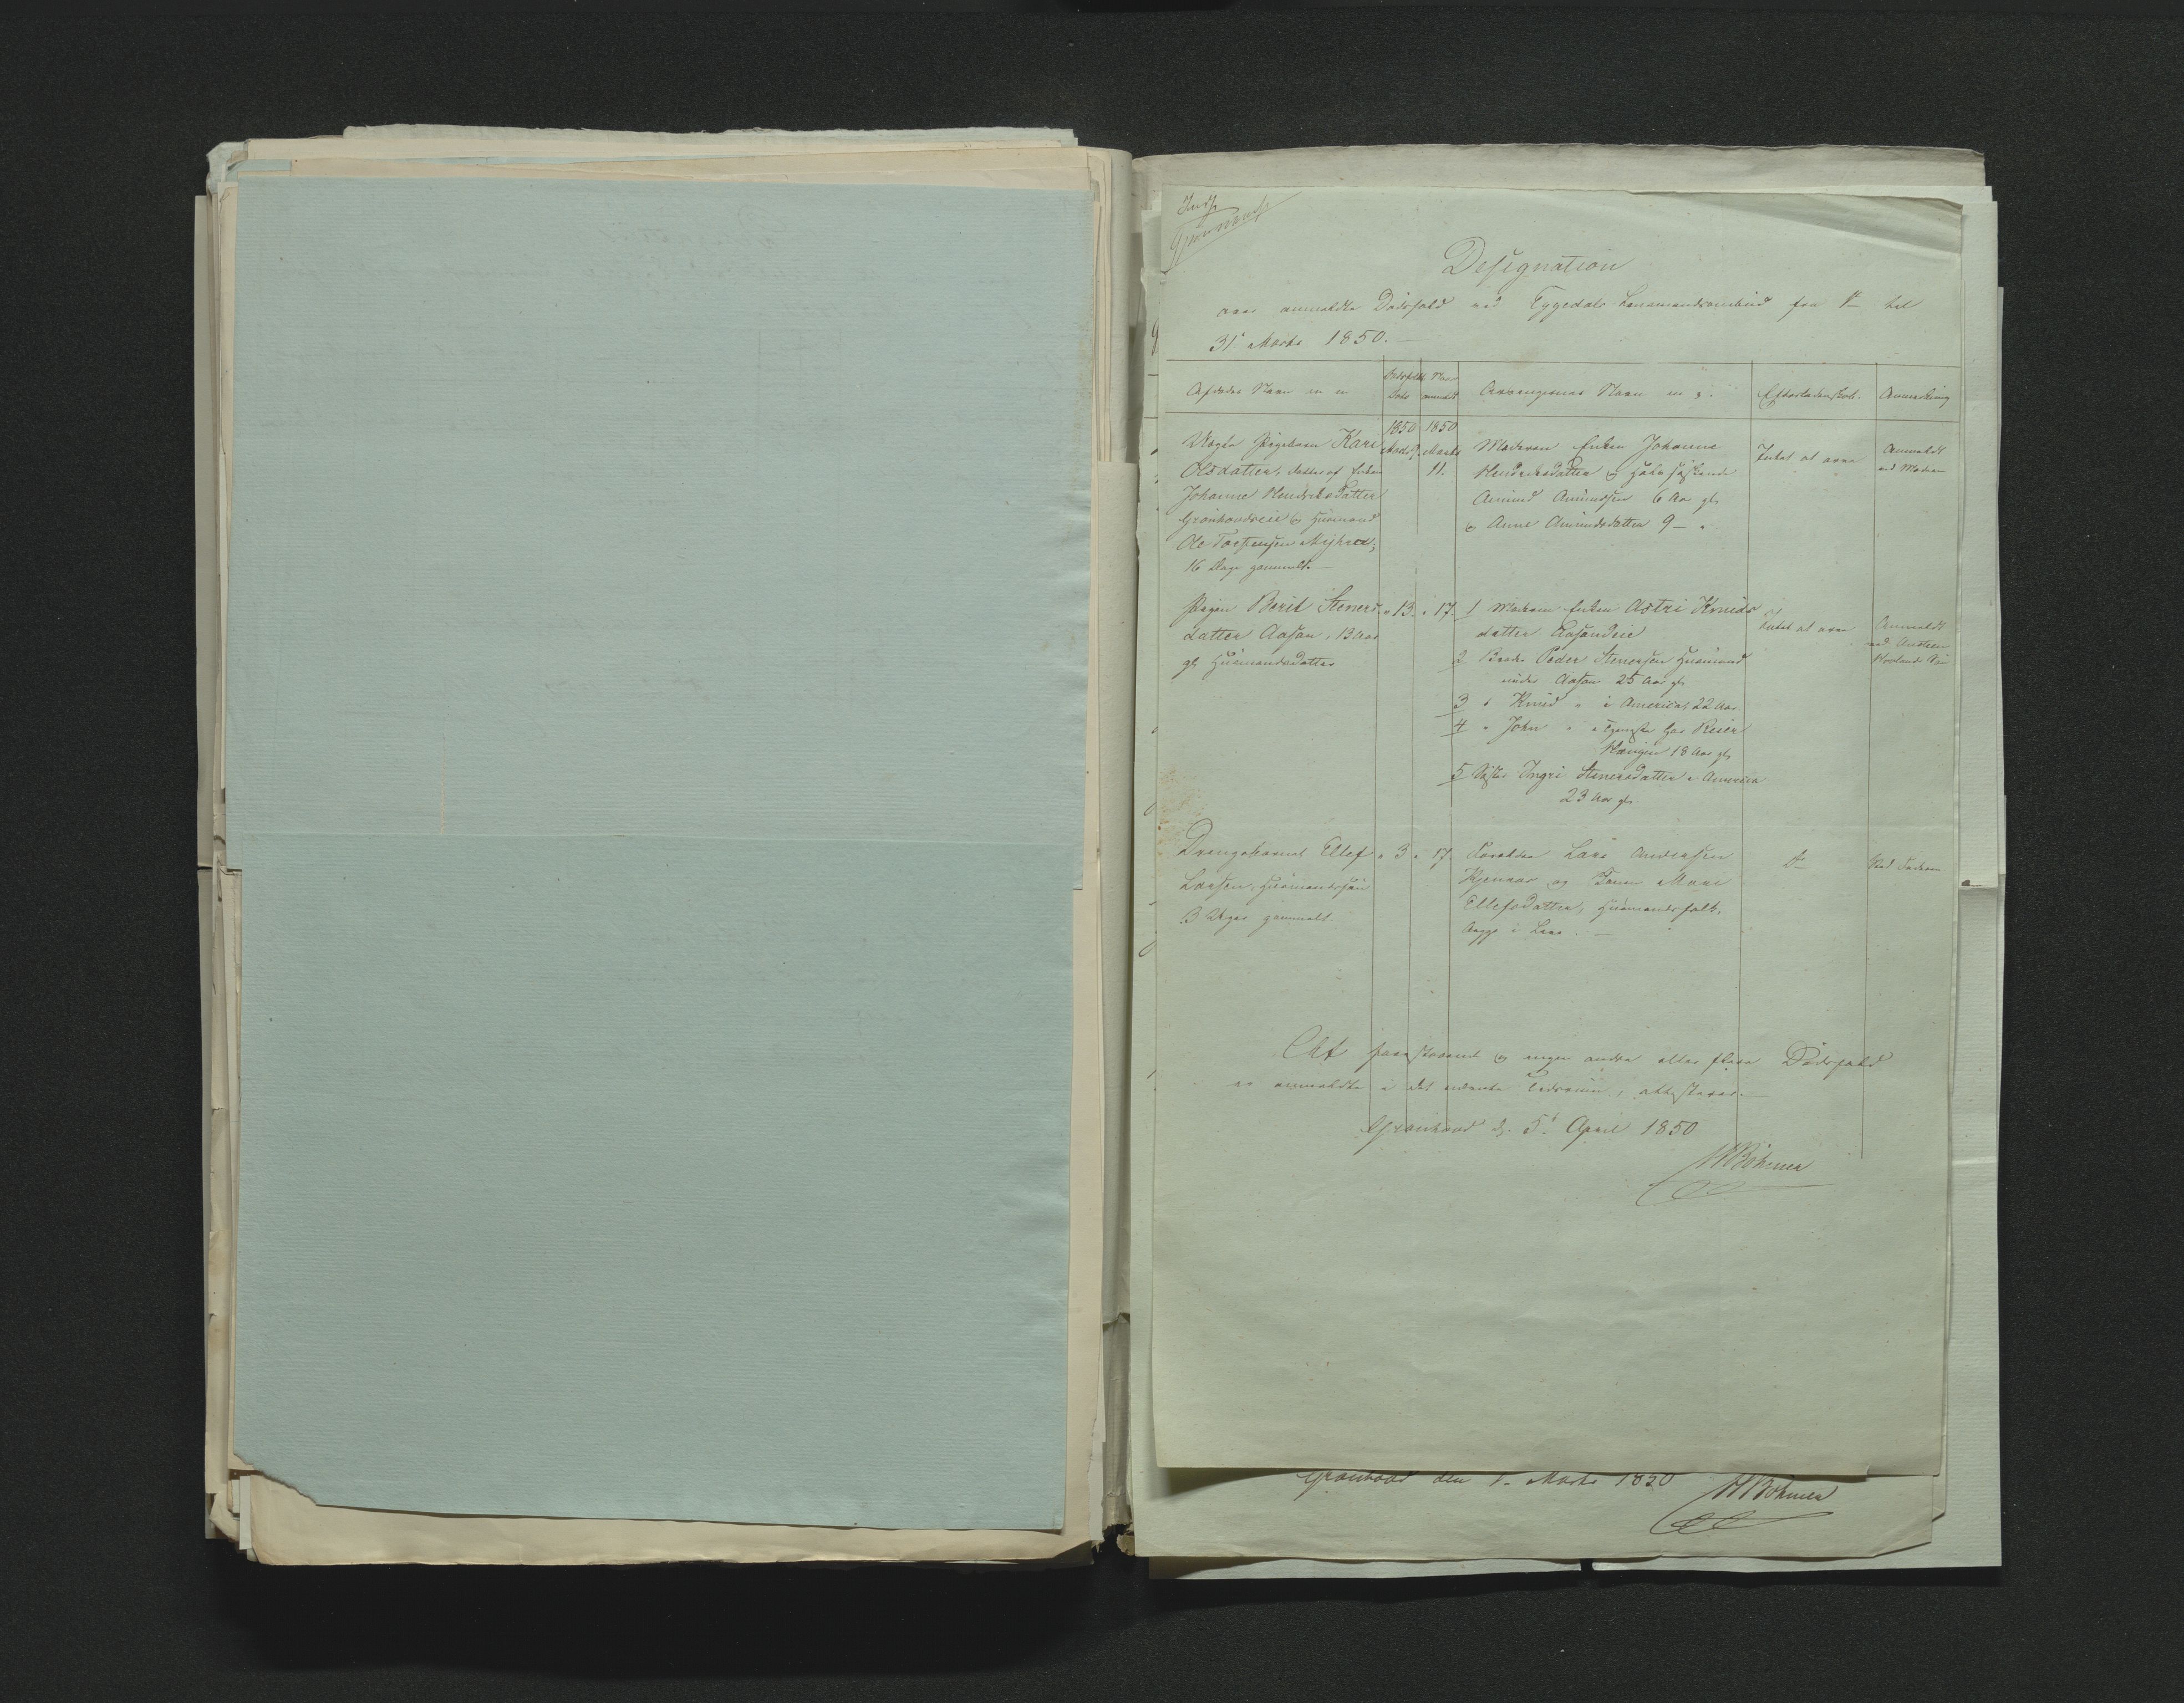 Designation
over anmeldte Dødsfald ved Eggedals Lensmandsombud fra 1ste til
31te Marts 1850.
Afdødes Navn m m
Dødsfaldets Dato
Naar anmeldt
Arvingernes Navn m. v.
Efterladenskab.
Anmerkning
1850 1850
Pigebarn Kari
Olsdatter, datter af Enken
Johanne Hendriksdatter
Grønhovdeie og Huusmand
Ole Torstensen
16 Dage gammelt.
Marts 9. Marts 11.
Moderen Enken Johanne
Hendriksdatter og Halvsøskende
Amund Amundsen 6 Aar gl.
og Anne Amundsdatter 9 — "
Intet at arve
Anmeldt
ved Moderen
Pigen Berit Steners
datter Aasan, 13 Aar
gl. Huusmandsdatter
" 13. " 17.
1 Moderen Enken Astri Knuds
datter Aasaneie
2 Broder Peder Stenersen Huusmand
under Aasan 25 Aar gl.
3 " Knud " i America, 22 Aar
4 " John " i Tjeneste hos Reier
18 Aar gl.
5 Søster Ingri Stenersdatter i America
23 Aar gl.
Intet at arve
Anmeldt
ved
Drengebarnet Ellef
Larsen, Huusmandssøn
3 Uger gammelt.
" 3 " 17.
Forældre Lars Andersen
og Kone Mari
Ellefsdatter, Huusmandsfolk,
begge i Live. —
do
Ved Faderen
At foranstaaende og ingen andre eller flere Dødsfald
er anmeldte i det nævnte Tidsrum, attesteres. —
Grønhovd d. 5te April 1850
HBøhmer
Grønhovd den 1. Marts 1850
HBøhmer